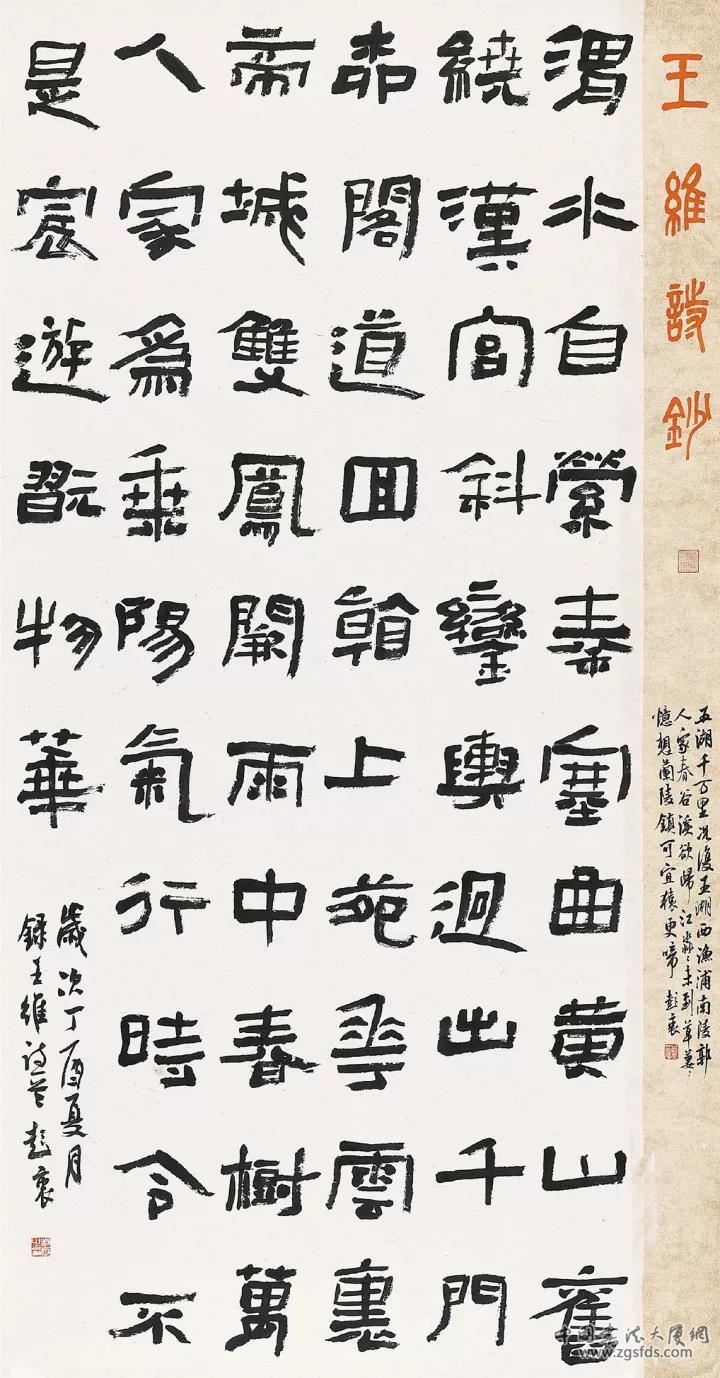 王維詩鈔
五湖千万里况復五湖西漁浦南陵郭
人家春谷溪欲歸江淼〻未到草萋〻
憶想蘭陵鎮可宜猿更啼
渭水自縈秦塞曲黃山舊
繞漢宮斜鑾輿迥出千門
柳閣道回看上苑花雲裏
帝城雙鳳闕雨中春樹萬
人家爲乗陽氣行時令不
是宸遊翫物華
歲次丁酉夏月
錄王維诗
中国书法大厦网
www.zgsfds.com